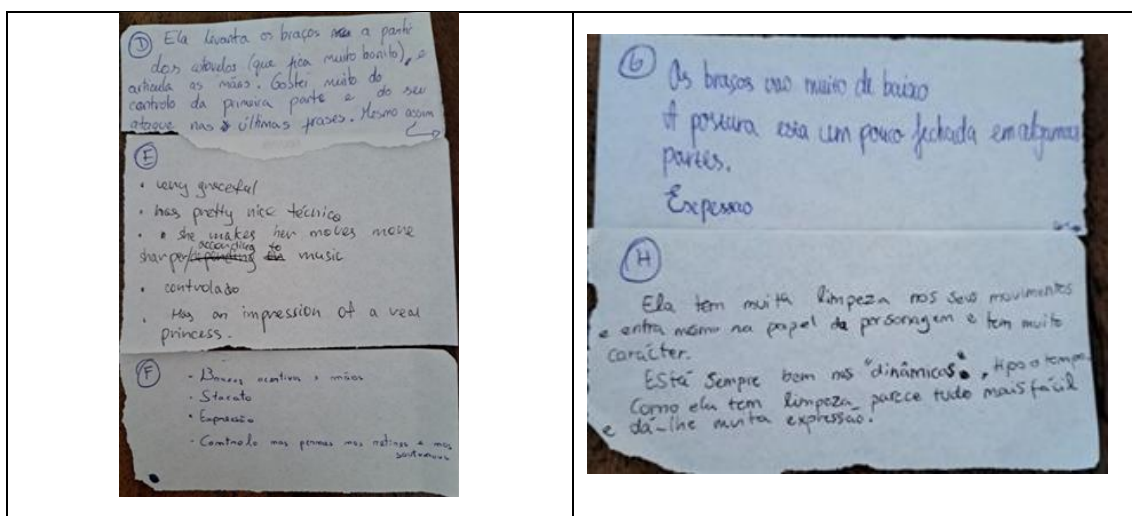 D Ela levanta os braços a partir
dos cotovelos (que fica muito bonito), e
articula as mãos. Gostei muito do
controlo da primeira parte e do seu
ataque nas últimas frases. Mesmo assim
E
• very graceful
• has pretty nice técnica
• she makes her moves more
sharper/depending according to music
• controlado
• Has an impression of a real
princess.
F
- mãos
- Stacato
- Expressão
- Controlo nas pernas nos retirés e nos
G
Os braços vão muito de baixo
A postura esta um pouco fechada em algumas
partes.
Expessao
H
Ela tem muita limpeza nos seus movimentos
e entra mesmo na papel da personagem e tem muito
carácter.
Está sempre bem nas "dinâmicas", tipo o tempo.
Como ela tem limpeza parece tudo mais fácil
e dá-lhe muita expressão.